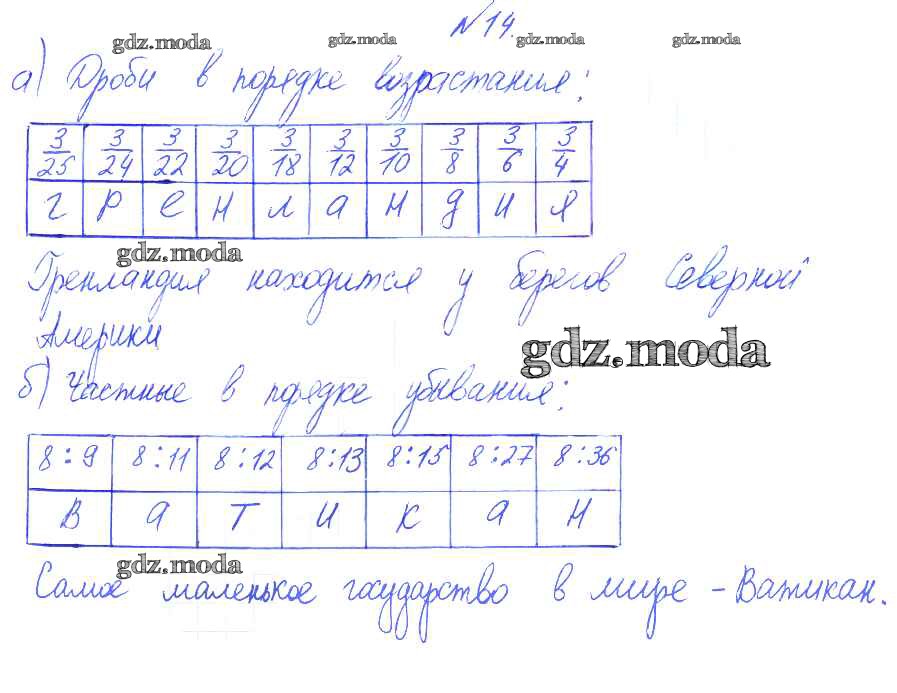 №14.
gdz.moda gdz.moda gdz.moda gdz.moda
а) Дроби в порядке возрастания:
3/25 3/24 3/22 3/20 3/18 3/12 3/10 3/8 3/6 3/4
г р е н л а н д и я
gdz.moda
Гренландия находится у берегов Северной
Америки
gdz.moda
б) Частные в порядке убывания:
8:9 8:11 8:12 8:13 8:15 8:27 8:36
В а т и к а н
gdz.moda
Самое маленькое государство в мире - Ватикан.